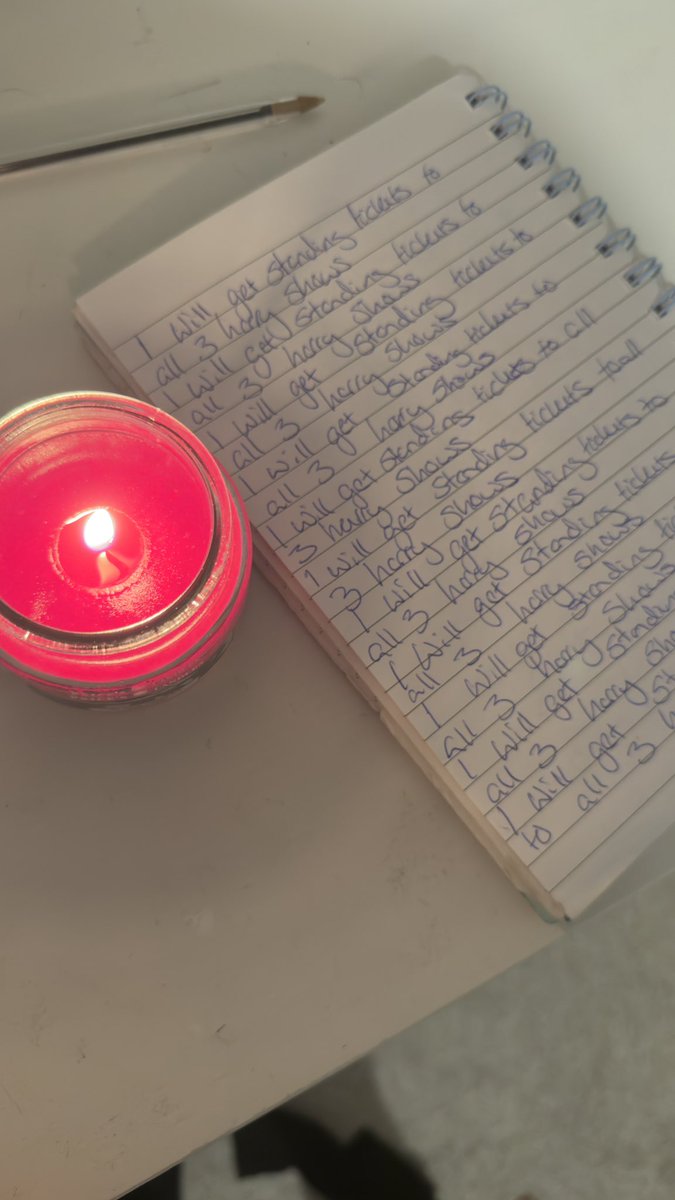 I will get standing tickets to
all 3 harry shows
I will get standing tickets to
all 3 harry shows
I will get standing tickets to
all 3 harry shows
I will get standing tickets to
all 3 harry shows
I will get standing tickets to all
3 harry shows
I will get standing tickets to all
3 harry shows
I will get standing tickets to
all 3 harry shows
I will get standing tickets
all 3 harry shows
I will get standing
all 3 harry shows
I will get standing
all 3 harry
I will get
to all 3